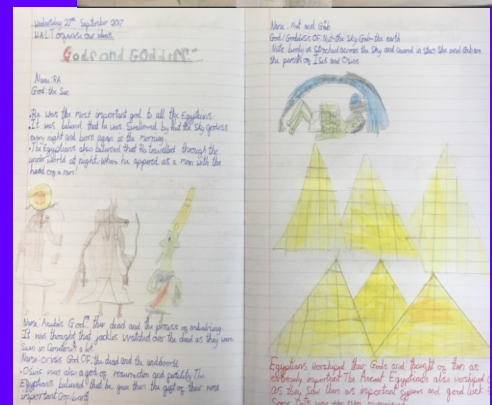 Wednesday 27th September 2017
WALT organise our ideas
Gods and Goddess
Name: RA
God: the Sun
Ra was the most important god to all the Egyptians
It was believed that he was swallowed by Nut the sky goddess
every night and born again in the morning.
The Egyptians also believed that Ra travelled through the
under world at night. When he appeared as a man with the
head of a ram!
Name: Anubis God: the dead and the process of embalming.
It was thought that jackles watched over the dead as they were
seen in a lot
Name: God OF: the dead and the
Osiris was also a god of resurrection and fertility. The
Egyptians believed that he gave them the gift of their most
important
Name: Nut and Geb
God/Goddess OF Nut-the sky Geb-the earth
Nuts body is stretched across the sky and coverd in stars she and Geb are
the parents of Isis and Osiris
Egyptians worshiped their Gods and thought of them as
extremly important The Ancient Egyptians also worshiped
as they saw them as important and good luck